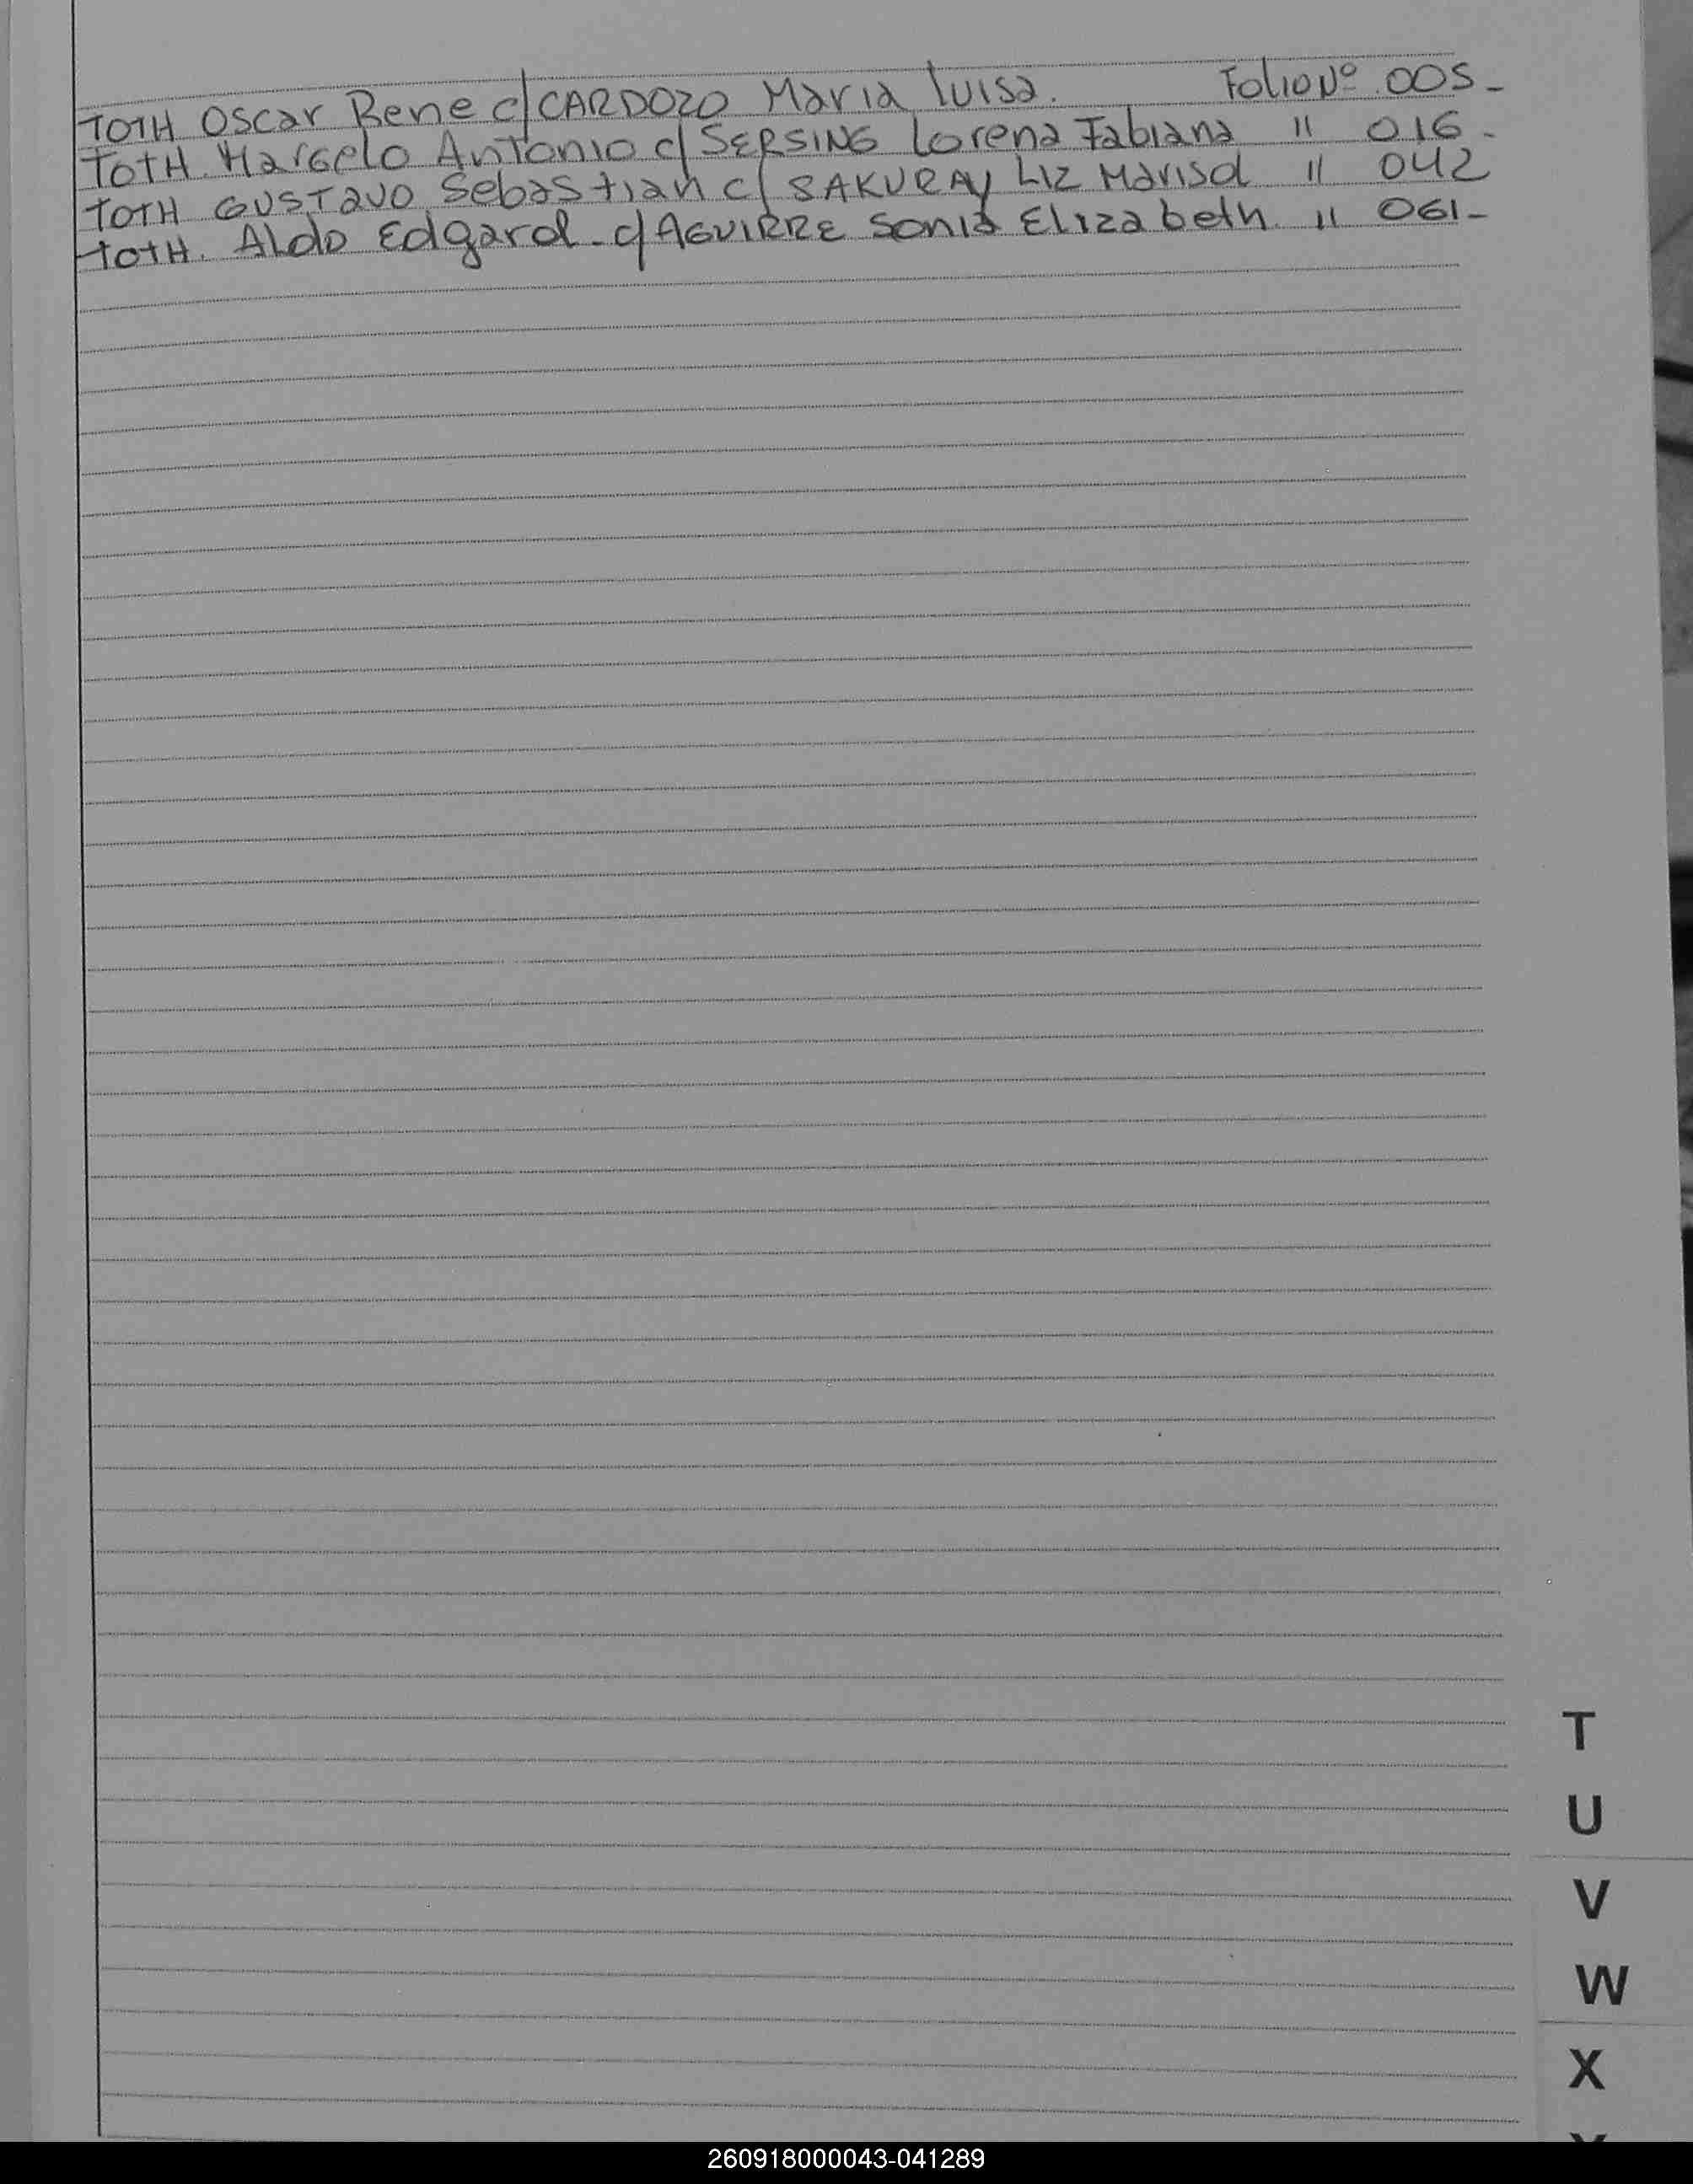 TOTH Oscar Rene c/ CARDOZO Maria Luisa. Folio Nº 005-
TOTH. Marcelo Antonio c/ SERSING Lorena Fabiana " 016-
TOTH GUSTAVO Sebastian c/ SAKURAY Liz Marisol " 042
TOTH. Aldo Edgard - c/ AGUIRRE Sonia Elizabeth. " 061-
T
U
V
W
X
260918000043-041289